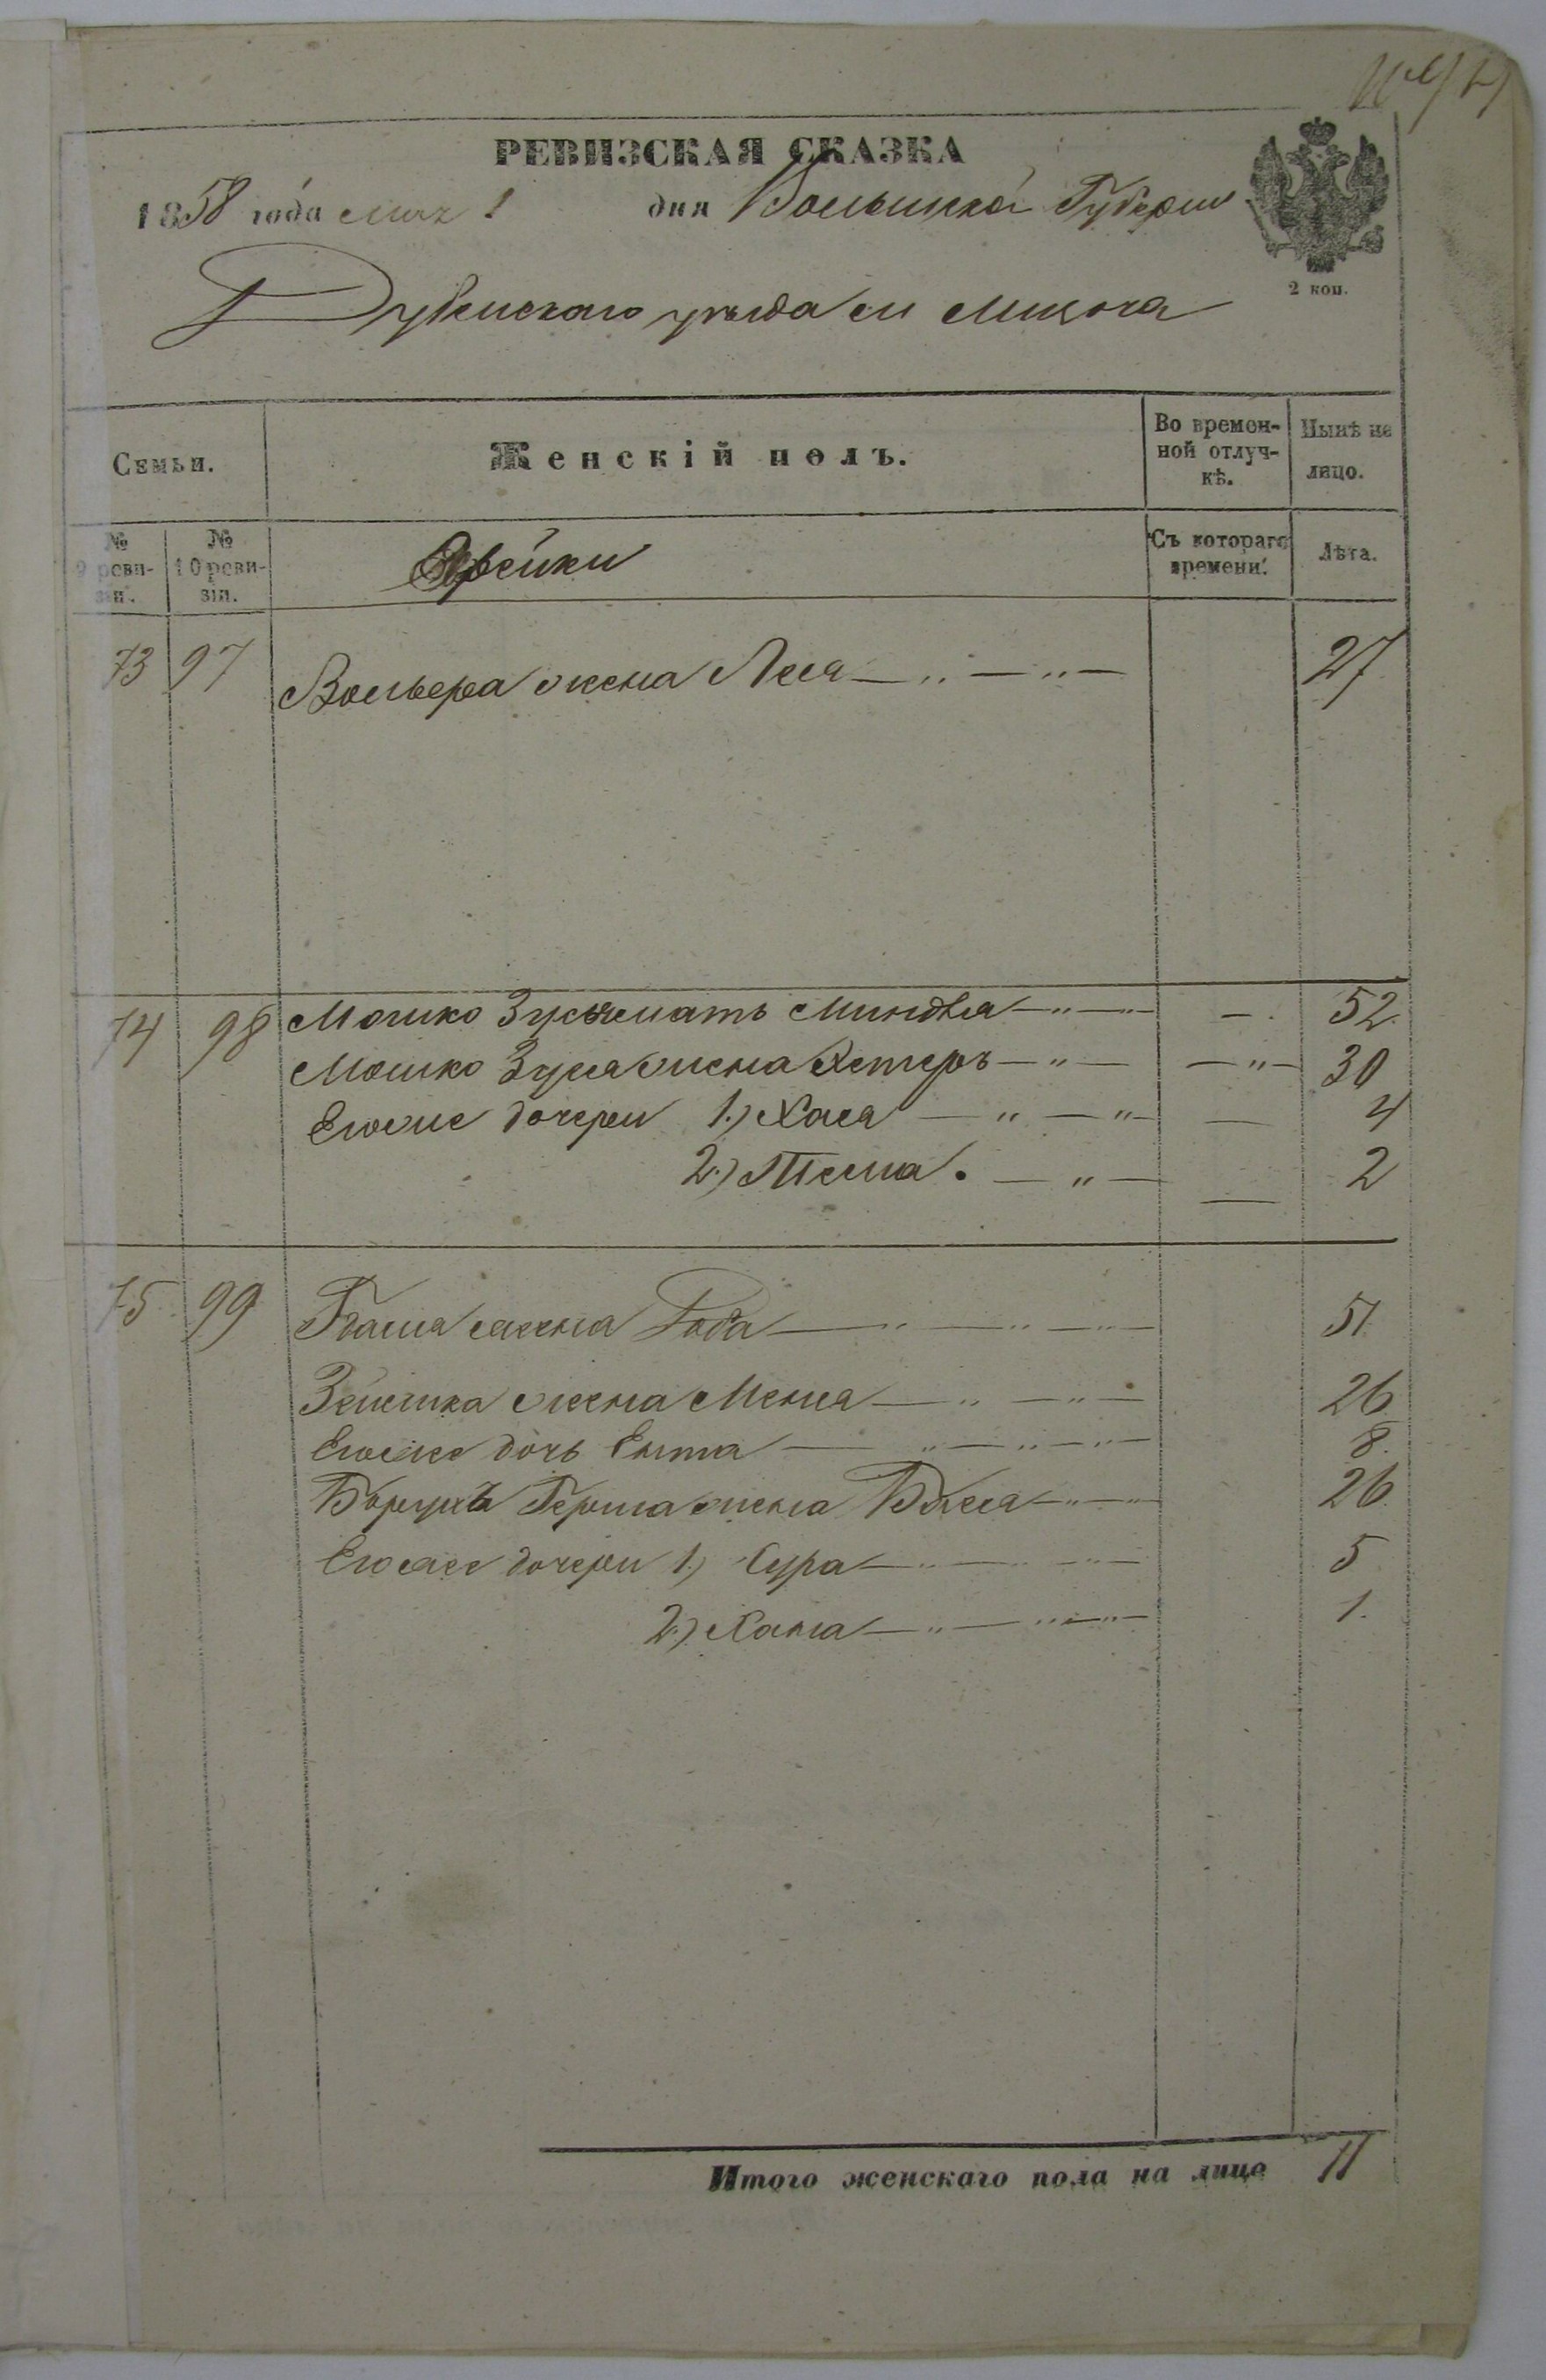 РЕВИЗСКАЯ СКАЗКА
1858 года Мая 1 дня Волынской Губернии
2 коп.
Дубенскаго уѣзда м Мизоча
Семьи.
Женскій полъ.
Во времен-
ной отлуч-
кѣ.
Нынѣ на
лицо.
№
9 реви-
зіи.
№
10 реви-
зіи.
Еврейки
Съ котораго
времени.
Лѣта.
73 97 Вольфа жена Лея 27
74 98 Мошко Зуся мать Миндля 52
Мошко Зуся жена Эстеръ 30
Его же дочери 1.) Хая 4
2.) 2
75 99 жена Рода 51
жена 26
Его же дочь Ента 8
Борухъ Герша жена 26
Его же дочери 1.) Сура 5
2.) Хана 1.
Итого женскаго пола на лицо 11